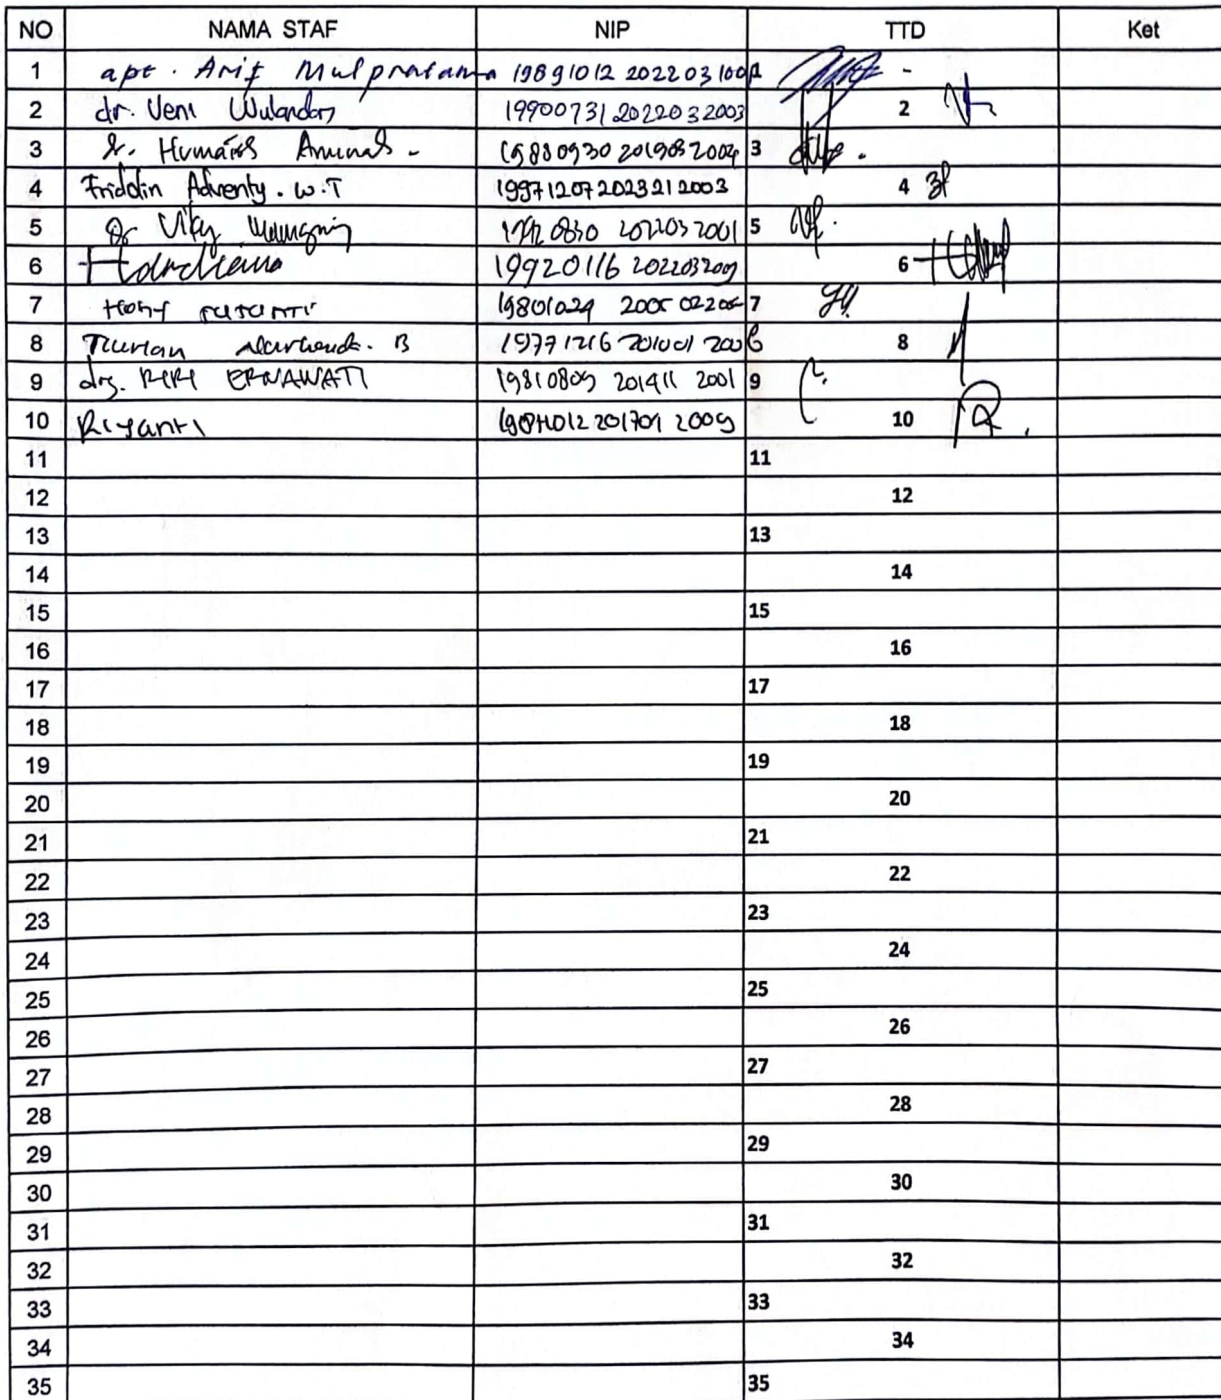 NO NAMA STAF NIP TTD Ket
1 apt. Arif Mulpratama 19891012 202203 1001
2 dr. Veni Wulandari 19900731 202203 2003 2
3 dr. Humaira 19880930 201903 2004 3
4 Friddin Adventy. W.T 19971207 202321 2003 4
5 dr Viky 19920830 202203 2001 5
6 19920116 202203 6
7 Heny 7
8 B 19771216 201001 2006 8
9 drg. RIRI ERNAWATI 19810809 201411 2001 9
10 Riyanti 201701 2009 10
11 11
12 12
13 13
14 14
15 15
16 16
17 17
18 18
19 19
20 20
21 21
22 22
23 23
24 24
25 25
26 26
27 27
28 28
29 29
30 30
31 31
32 32
33 33
34 34
35 35